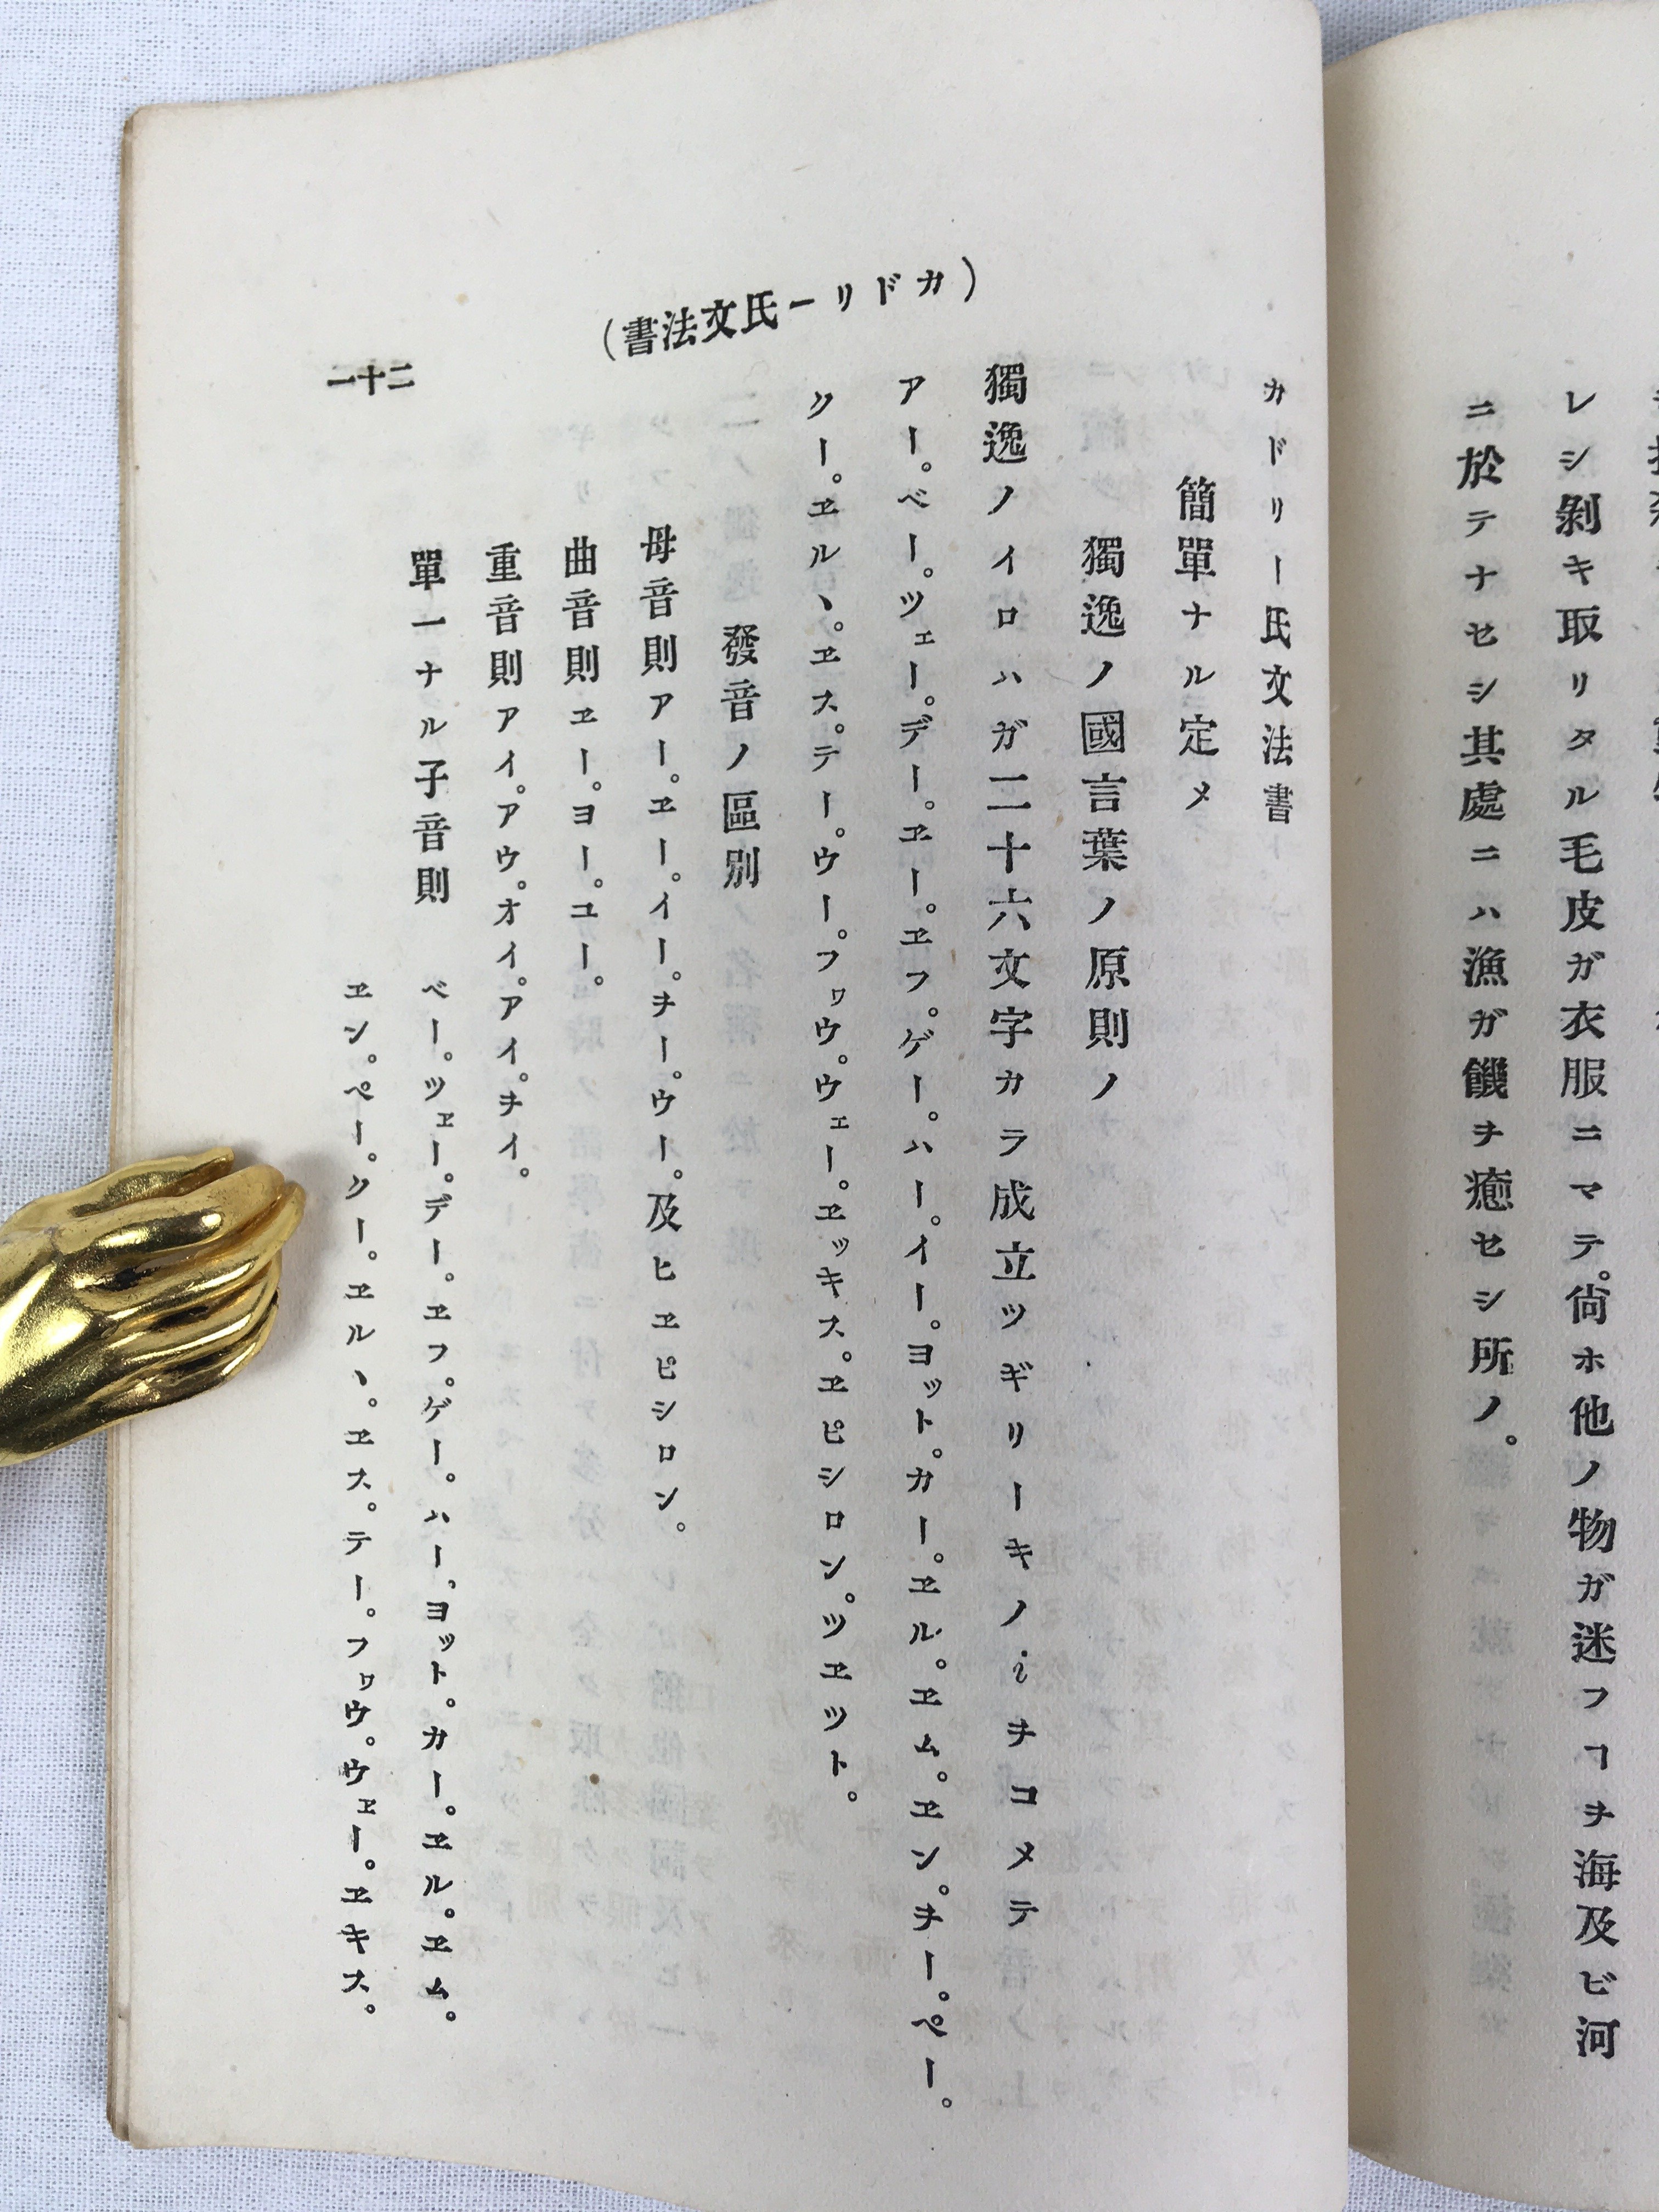 レシ剝キ取リタル毛皮ガ衣服ニマテ。尙ホ他ノ物ガ迷フヿヲ海及ビ河
ニ於テナセシ其處ニハ漁ガ饑ヲ癒セシ所ノ。
(カドリー氏文法書)
カドリー氏文法書
簡單ナル定メ
獨逸ノ國言葉ノ原則ノ
獨逸ノイロハガ二十六文字カラ成立ツギリーキノiヲコメテ
アー。ベー。ツェー。デー。ヱー。ヱフ。ゲー。ハー。イー。ヨット。カー。ヱル。ヱム。ヱン。ヲー。ペー。
クー。ヱル丶。ヱス。テー。ウー。フヮウ。ウェー。ヱッキス。ヱピシロン。ツヱット。
發音ノ區別
母音則アー。ヱー。イー。ヲー。ウー。及ヒヱピシロン。
曲音則ヱー。ヨー。ユー。
重音則アイ。アウ。オイ。アイ。ヲイ。
單一ナル子音則
ベー。ツェー。デー。ヱフ。ゲー。ハー。ヨット。カー。ヱル。ヱム。
ヱン。ペー。クー。ヱル丶。ヱス。テー。フヮウ。ウェー。ヱキス。
二十一